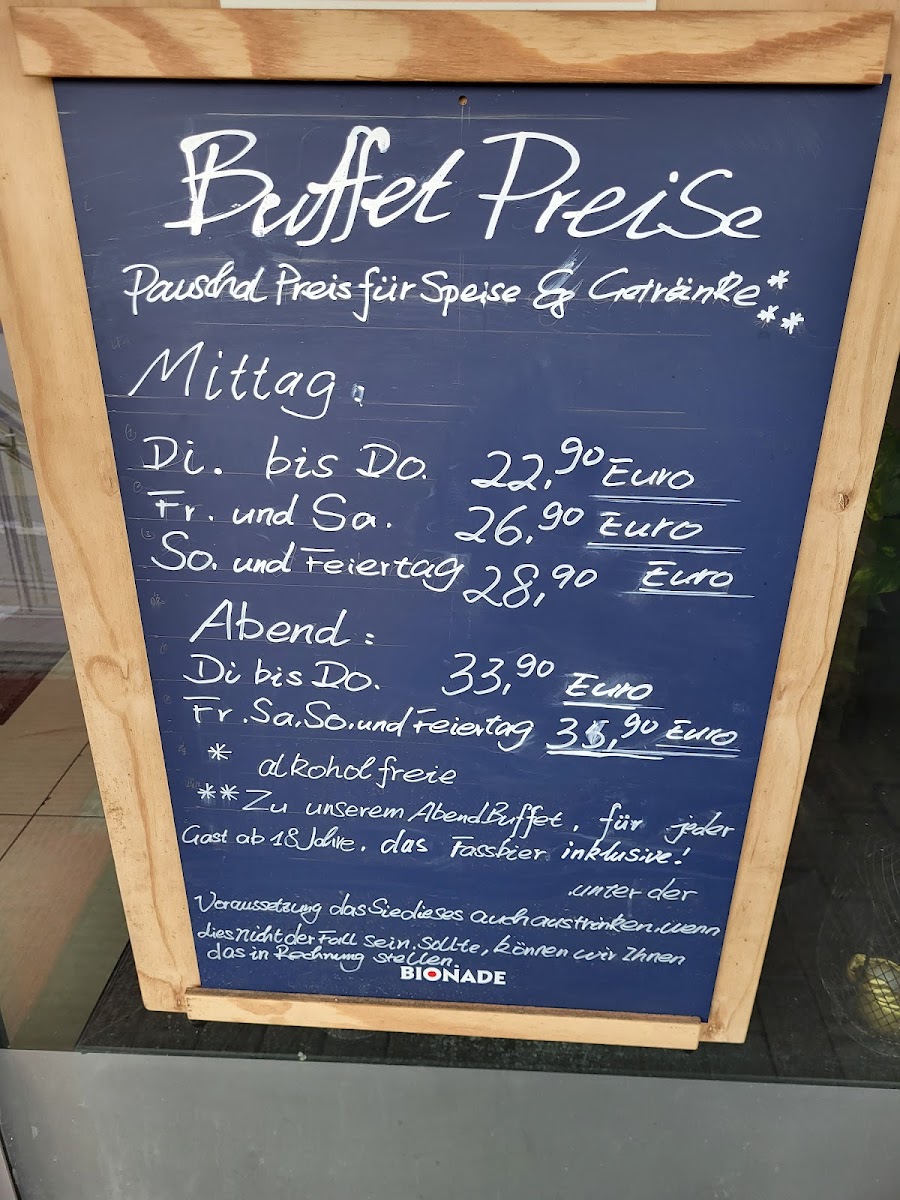 Buffet Preise
Pauschal Preis für Speise & Getränke*
**
Mittag.
Di. bis Do. 22,90 Euro
Fr. und Sa. 26,90 Euro
So. und Feiertag 28,90 Euro
Abend:
Di bis Do. 33,90 Euro
Fr. Sa. So. und Feiertag 35,90 Euro
* alkoholfreie
** Zu unserem AbendBuffet, für jeder
Gast ab 18 Jahre, das Fassbier inklusive!
unter der
Voraussetzung das Sie dieses auch austrinken. wenn
dies nicht der Fall sein sollte, können wir Ihnen
das in Rechnung stellen.
BIONADE